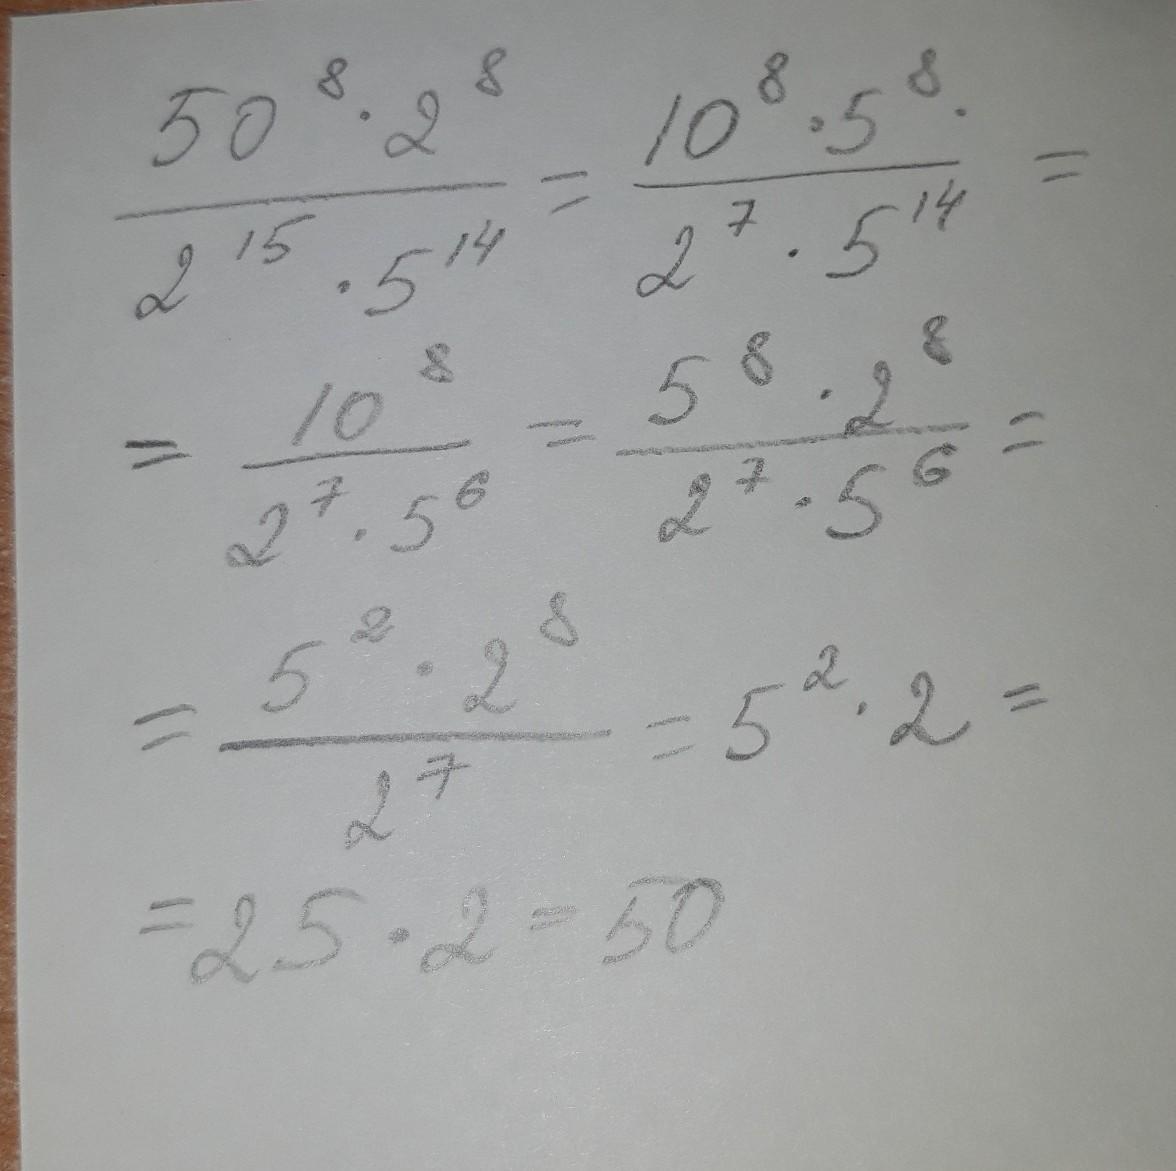 50⁸ · 2⁸ / 2¹⁵ · 5¹⁴ = 10⁸ · 5⁸ · / 2⁷ · 5¹⁴ =
= 10⁸ / 2⁷ · 5⁶ = 5⁸ · 2⁸ / 2⁷ · 5⁶ =
= 5² · 2⁸ / 2⁷ = 5² · 2 =
= 25 · 2 = 50